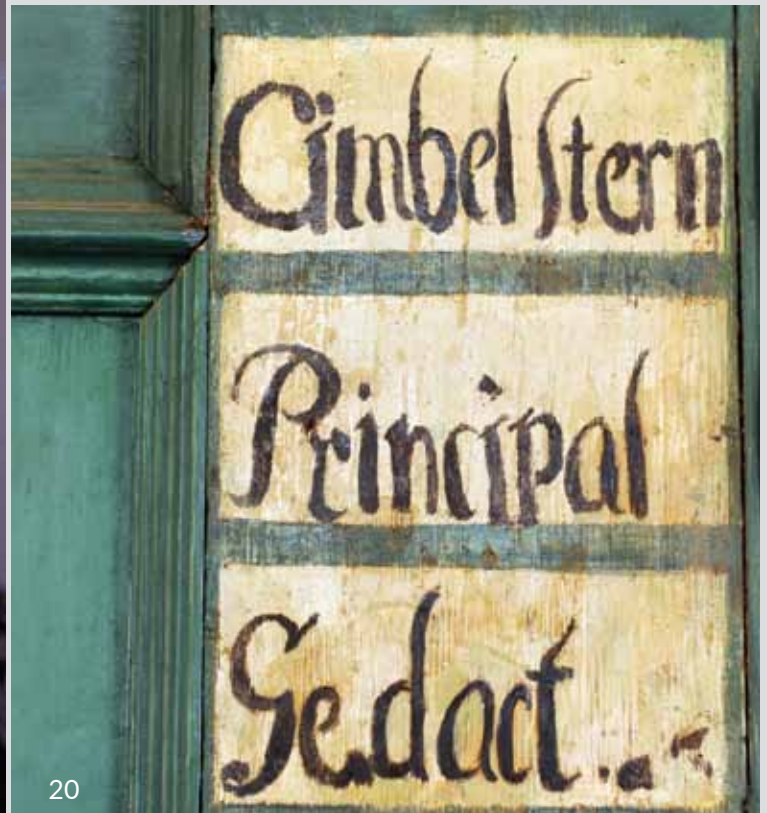 Cimbel stern
Principal
Gedact...
20